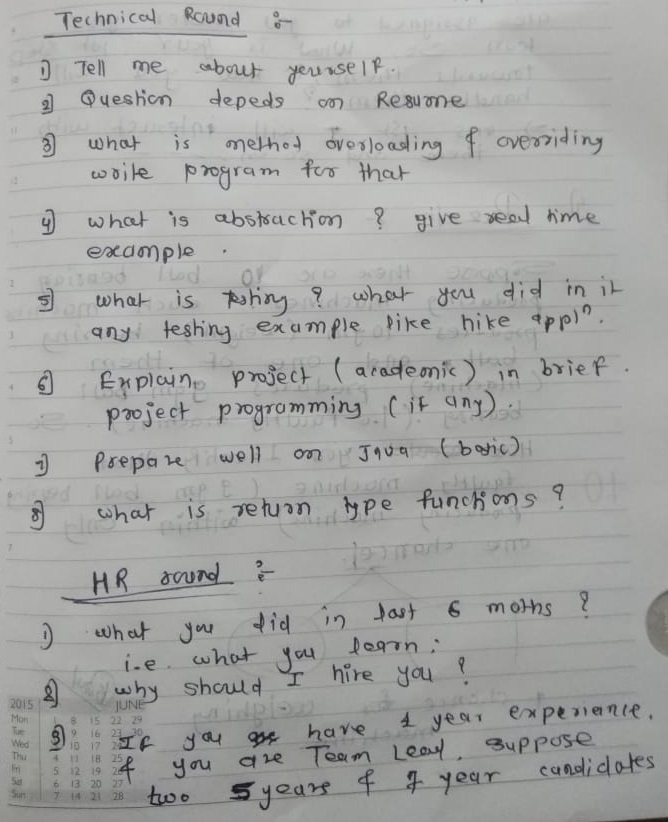 Technical Round :-
1) Tell me about yourself.
2) Question depeds on Resume
3) what is method overloading & overriding
write program for that
4) what is abstraction ? give real time
example .
5) what is testing ? what you did in it
any testing example like hike appln.
6) Explain project (academic) in brief .
project programming (if any).
7) Prepare well on Java (basic)
8) what is return type functions ?
HR round :-
1) what you did in last 6 moths ?
i.e. what you learn :
2) why should I hire you ?
3) If you have 1 year experience.
& you are Team Lead. suppose
two 5 years & 7 year candidates
2015 JUNE
Mon 1 8 15 22 29
Tue 9 16 23 30
Wed 10 17
Thu 4 11 18 25
Fri 5 12 19
Sat 6 13 20 27
Sun 7 14 21 28